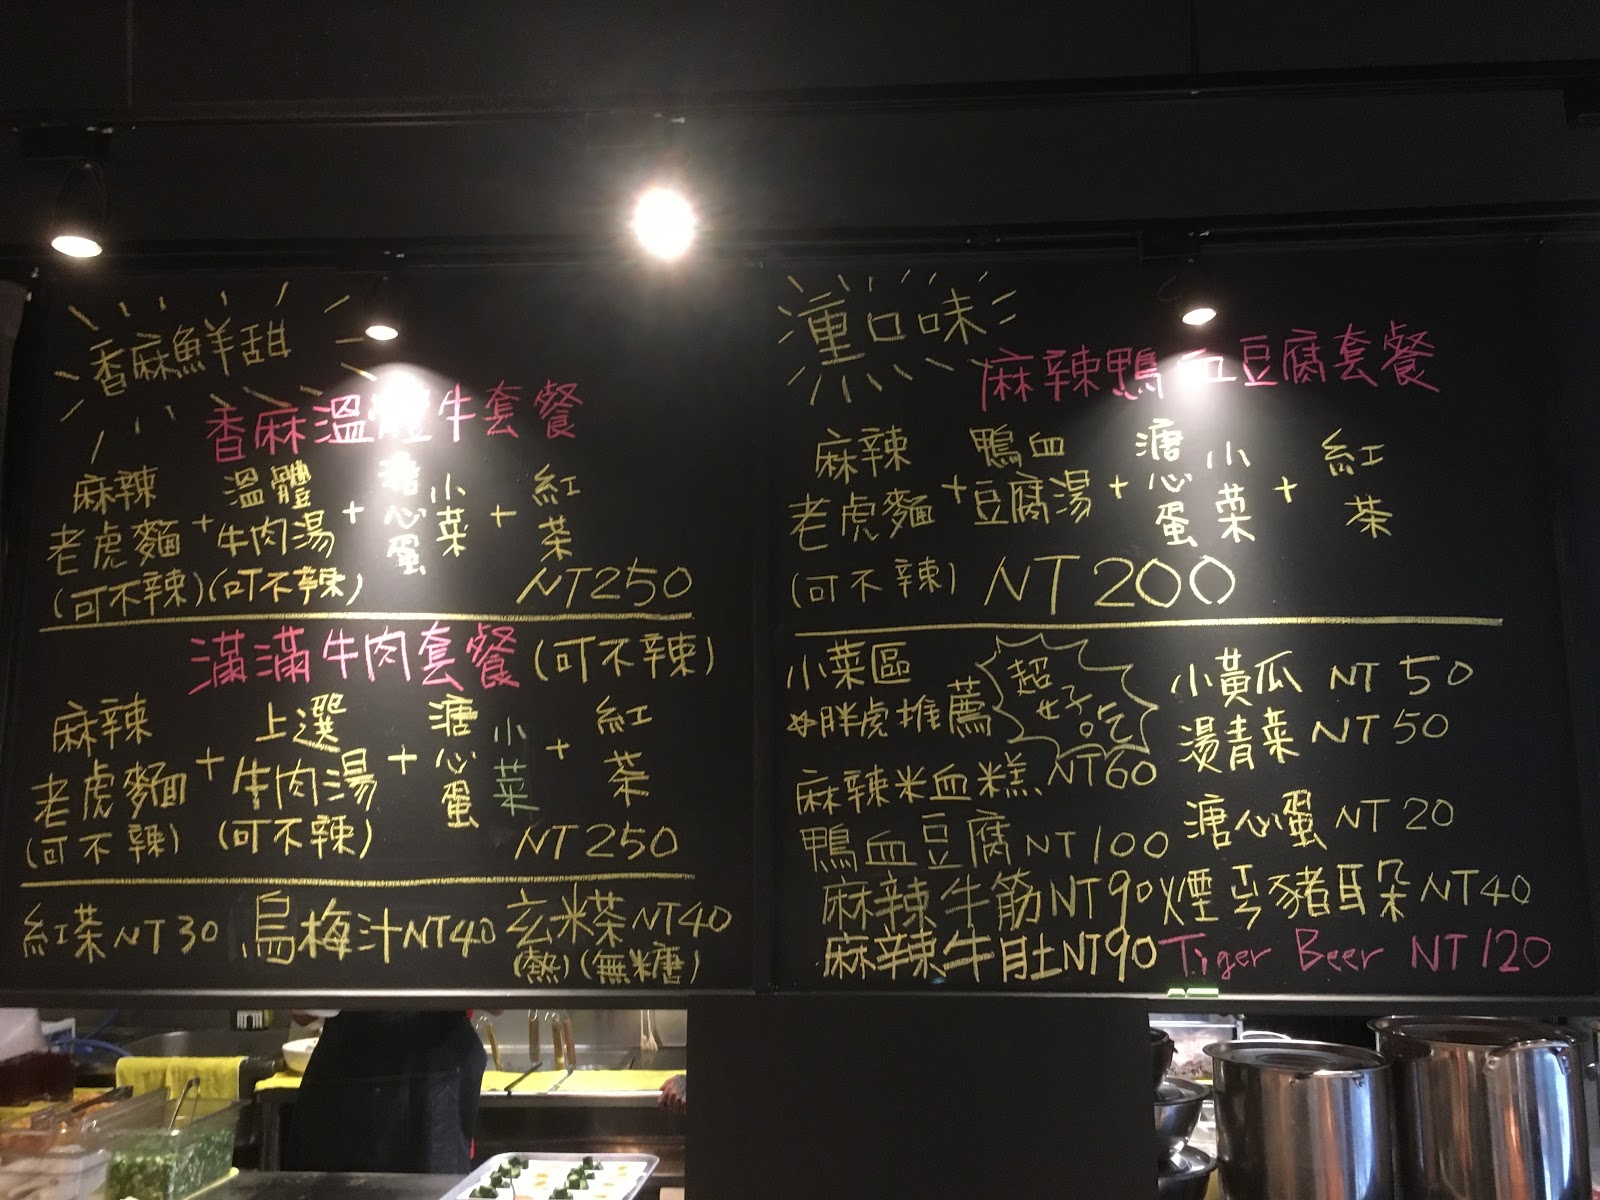 香麻鮮甜
香麻溫體牛套餐
麻辣老虎麵 + 溫體牛肉湯 + 溏心蛋 小菜 + 紅茶
(可不辣) (可不辣) NT250
滿滿牛肉套餐 (可不辣)
麻辣老虎麵 + 上選牛肉湯 + 溏心蛋 小菜 + 紅茶
(可不辣) (可不辣) NT250
紅茶NT30 烏梅汁NT40 玄米茶NT40
(熱)(無糖)
重口味
麻辣鴨血豆腐套餐
麻辣老虎麵 + 鴨血豆腐湯 + 溏心蛋 小菜 + 紅茶
(可不辣) NT200
小菜區
胖虎推薦 超好吃
麻辣米血糕NT60
鴨血豆腐NT100
麻辣牛筋NT90
麻辣牛肚NT90
小黃瓜 NT50
燙青菜NT50
溏心蛋NT20
豬耳朵NT40
Tiger Beer NT120